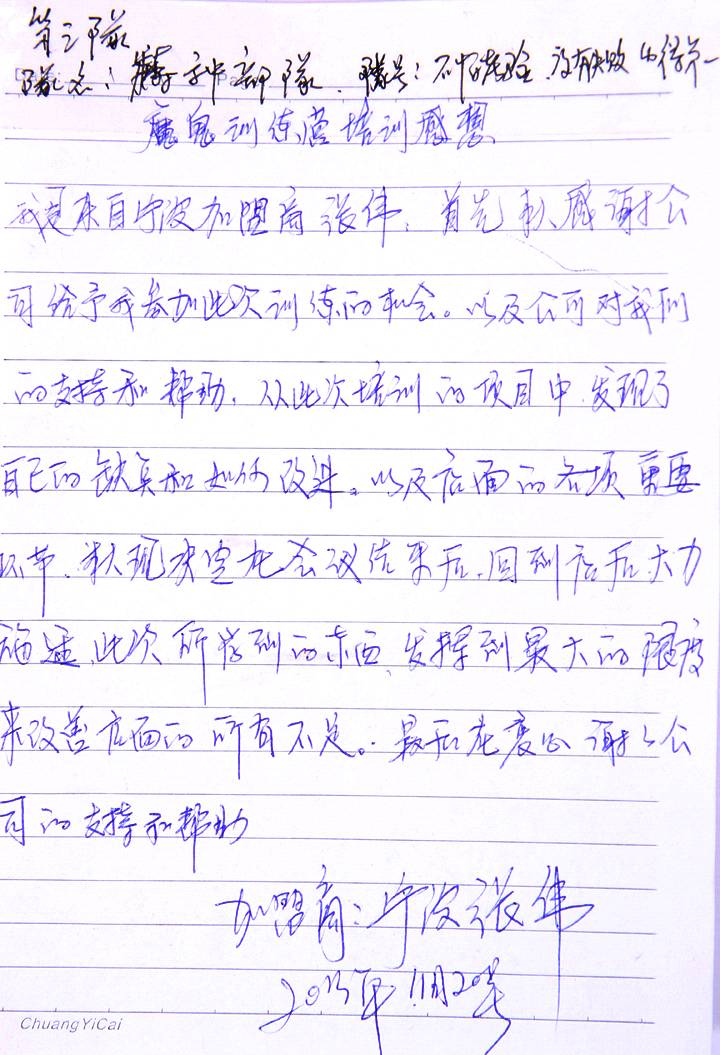 第三队
队名：特种部队 队号：不怕考验 没有失败 必得第一
魔鬼训练营培训感想
我是来自宁波加盟商张伟，首先我感谢公
司给予我参加此次训练的机会。以及公司对我们
的支持和帮助，从此次培训的项目中，发现了
自己的缺点和如何改进。以及店面的各项重要
环节，我现决定在会议结束后，回到店后大力
施展，此次所学到的东西，发挥到最大的限度
来改善店面的所有不足。最后在衷心谢谢公
司的支持和帮助
加盟商：宁波张伟
2013年11月20号
ChuangYiCai